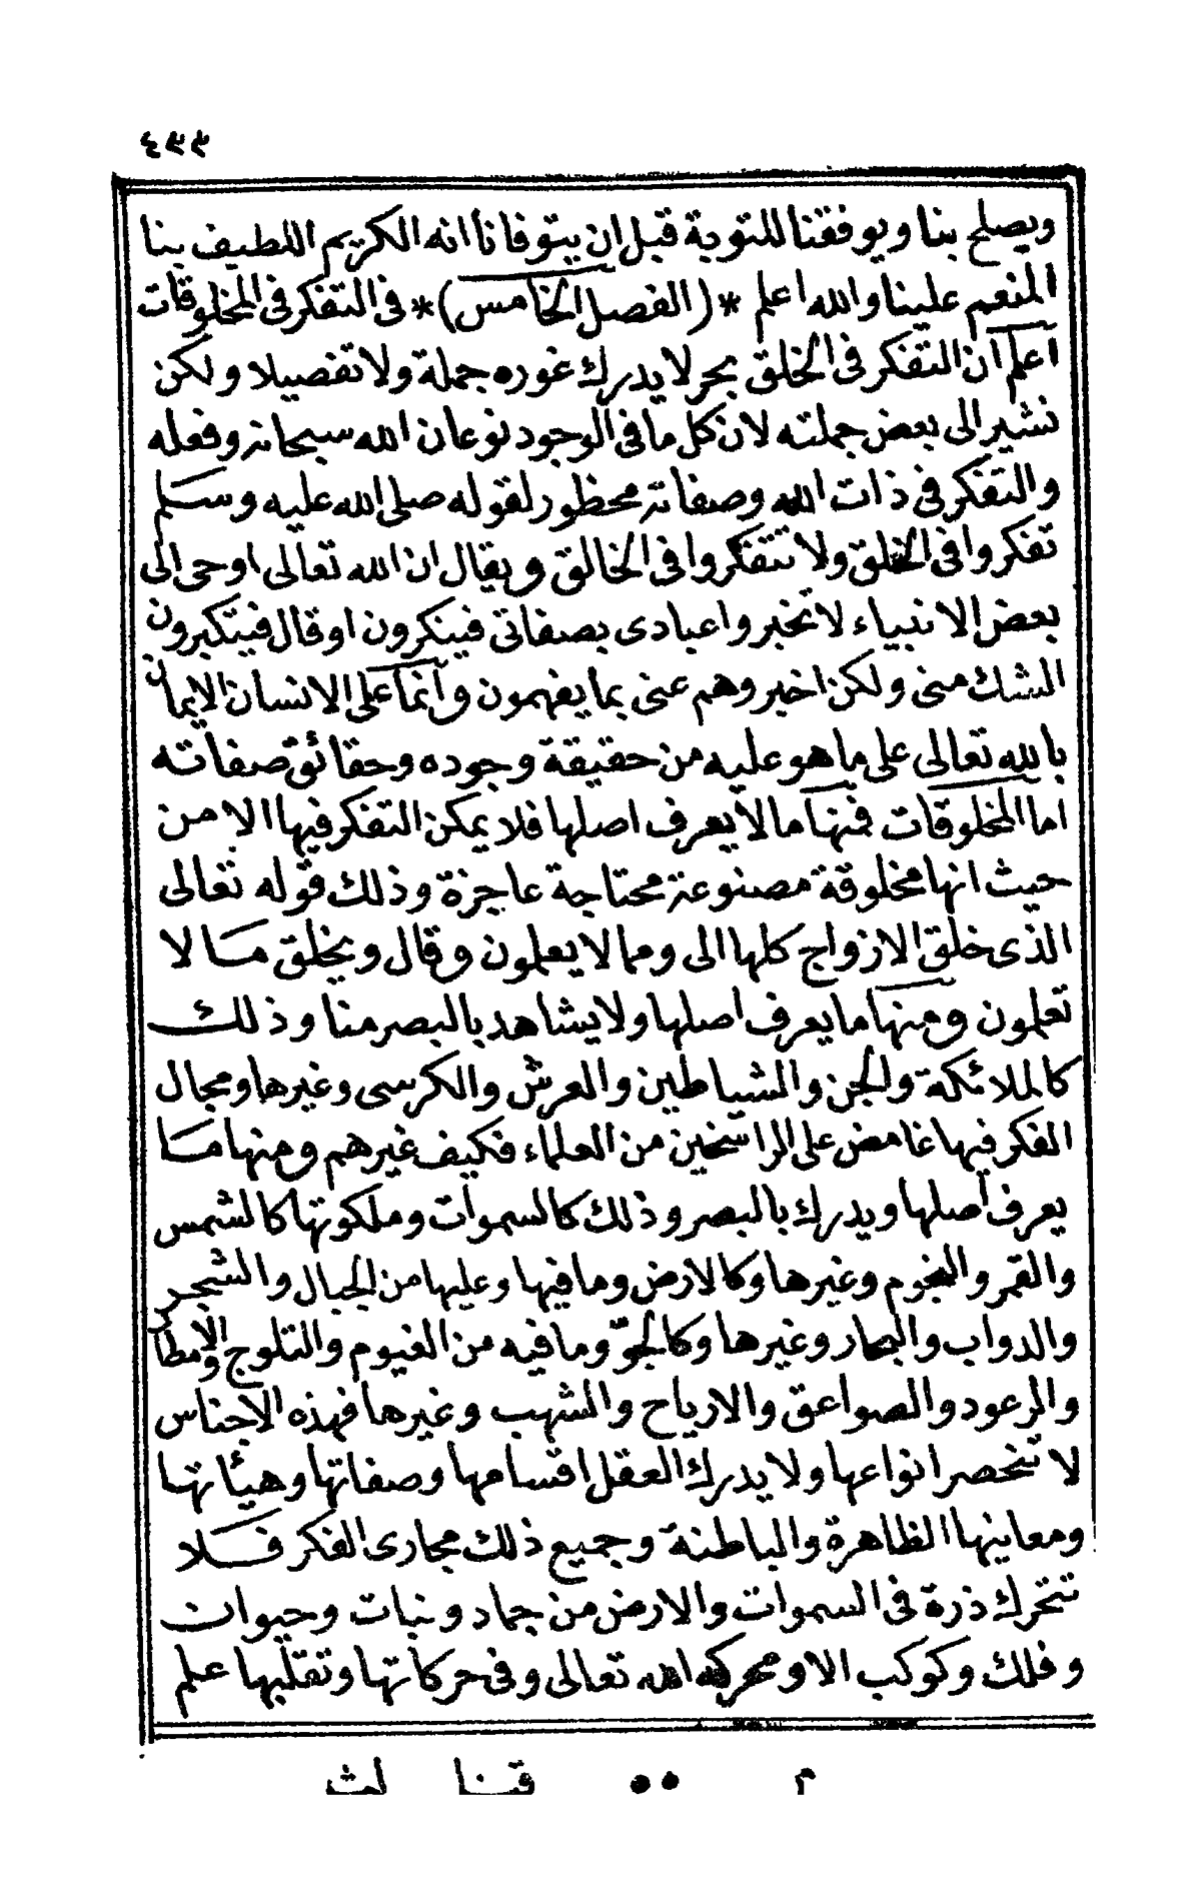 ٤٣٣
ويصلح بنا ويوفقنا للتوبة قبل ان يتوفانا انه الكريم اللطيف بنا
المنعم علينا والله اعلم *(الفصل الخامس)* فى التفكر فى المخلوقات
اعلم ان التفكر فى الخلق بحر لا يدرك غوره جملة ولا تفصيلا ولكن
نشير الى بعض جملته لان كل ما فى الوجود نوعان الله سبحانه وفعله
والتفكر فى ذات الله وصفاته محظور لقوله صلى الله عليه وسلم
تفكروا فى الخلق ولا تتفكروا فى الخالق ويقال ان الله تعالى اوحى الى
بعض الانبياء لا تخبروا عبادى بصفاتى فينكرون او قال فيتكبرون
الشك منى ولكن اخبروهم عنى بما يفهمون وانما على الانسان الايمان
بالله تعالى على ما هو عليه من حقيقة وجوده وحقائق صفاته
اما المخلوقات فمنها ما لا يعرف اصلها فلا يمكن التفكر فيها الا من
حيث انها مخلوقة مصنوعة محتاجة عاجزة وذلك قوله تعالى
الذى خلق الازواج كلها الى ومما لا يعلمون وقال ويخلق ما لا
تعلمون ومنها ما يعرف اصلها ولا يشاهد بالبصر منا وذلك
كالملائكة والجن والشياطين والعرش والكرسى وغيرها ومجال
الفكر فيها غامض على الراسخين من العلماء فكيف غيرهم ومنها ما
يعرف اصلها ويدرك بالبصر وذلك كالسموات وملكوتها كالشمس
والقمر والنجوم وغيرها وكالارض وما فيها وعليها من الجبال والشجر
والدواب والبحار وغيرها وكالجوّ وما فيه من الغيوم والثلوج والامطار
والرعود والصواعق والارياح والشهب وغيرها فهذه الاجناس
لا تنحصر انواعها ولا يدرك العقل اقسامها وصفاتها وهيئاتها
ومعاينها الظاهرة والباطنة وجميع ذلك مجارى الفكر فلا
تتحرك ذرة فى السموات والارض من جماد ونبات وحيوان
وفلك وكوكب الا ومحركه الله تعالى وفى حركاتها وتقلبها علم
م ٥٥ قنا لث